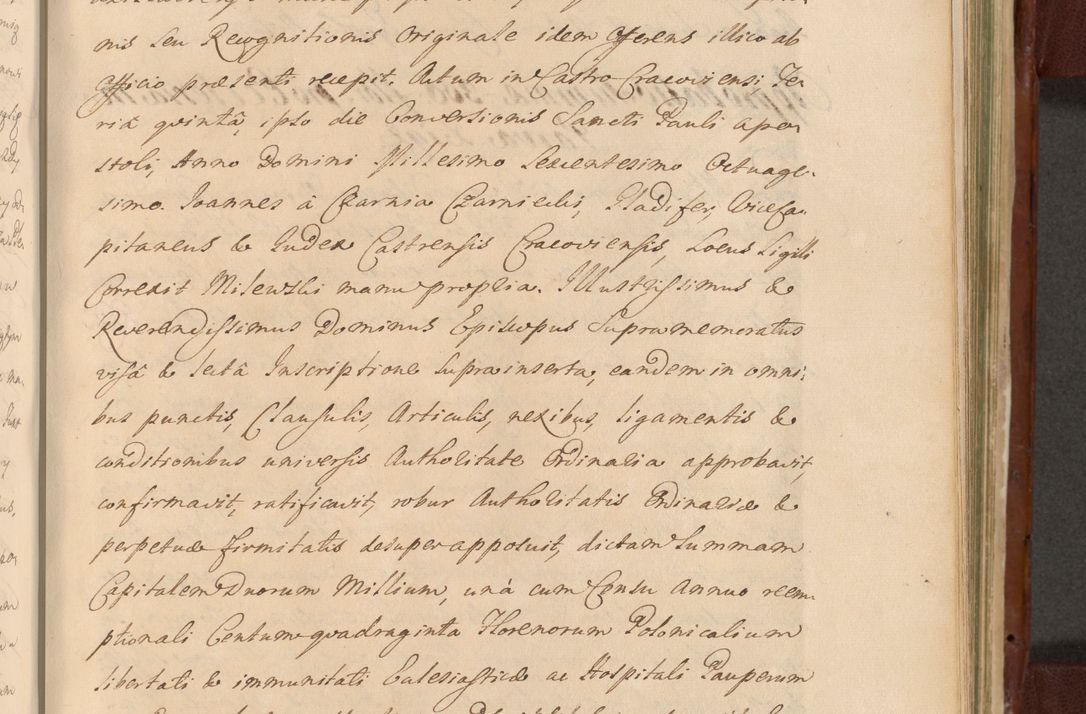 nis seu Recognitionis Originale idem Offerens illico ab
Officio præsenti recepit. Actum in Castro Cracoviensi, Fe
ria quintâ, ipso die Conversionis Sancti Pauli Apo
stoli, Anno Domini Millesimo Sexcentesimo Octuage-
simo. Joannes à Czarnia Czarniecki, Gladifer, Viceca-
pitaneus & Judex Castrensis Cracoviensis, Locus Sigilli
Correxit Milewski manu propria. Illustrissimus &
Reverendissimus Dominus Episcopus Supra memoratus
visâ & lectâ Inscriptione supra inserta, eandem in omni-
bus punctis, Clausulis, Articulis, nexibus, ligamentis &
conditionibus universis Authoritate Ordinaria approbavit,
confirmavit, ratificavit, robur Authoritatis Ordinariæ &
perpetuæ firmitatis desuper apposuit, dictam Summam
Capitalem Duorum Millium, unà cum Censu Annuo reem-
ptionali Centum quadraginta Florenorum Polonicalium
libertati & immunitati Ecclesiasticæ ac Hospitali Pauperum